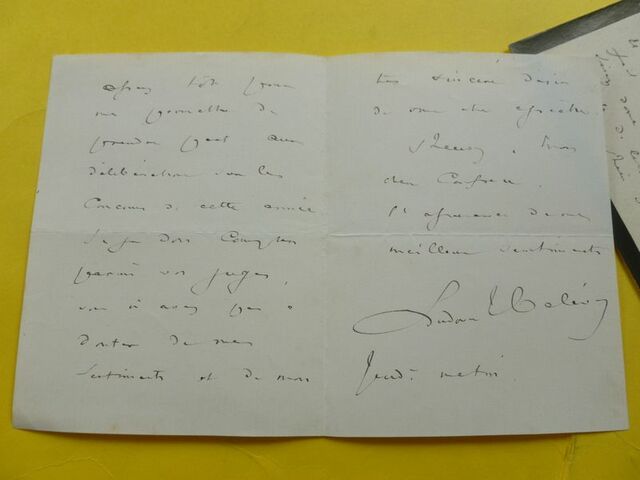 assez tôt pour
me permettre de
prendre part aux
délibérations sur les
Concours de cette année
Si je dois compter
parmi vos juges,
vous n'avez pas à
douter de mes
sentiments et de mon
très sincère désir
de vous être agréable.
Recevez, mon
cher Confrère,
l'assurance de mes
meilleurs sentiments
Ludovic Halévy
Jeudi matin.